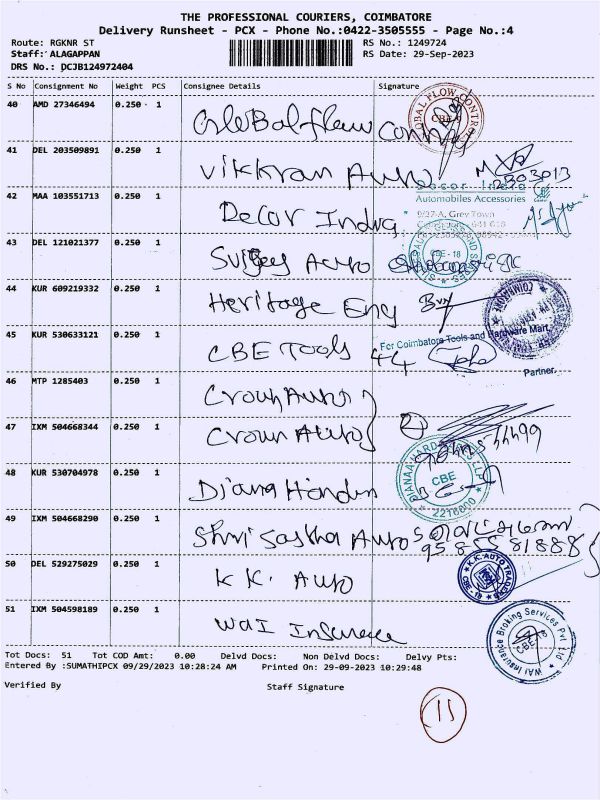 THE PROFESSIONAL COURIERS, COIMBATORE
Delivery Runsheet - PCX - Phone No.:0422-3505555 - Page No.:4
Route: RGKNR ST RS No.: 1249724
Staff: ALAGAPPAN RS Date: 29-Sep-2023
DRS No.: DCJB124972404
S No Consignment No Weight PCS Consignee Details Signature
40 AMD 27346494 0.250 1 Global flow Control
41 DEL 203509891 0.250 1 Vikkran Auto
42 MAA 103551713 0.250 1 Decor India
Decor India
Automobiles Accessories
9/37-A, Grey Town
43 DEL 121021377 0.250 1 Auto
CBE - 18
44 KUR 609219332 0.250 1 Heritage Eng
45 KUR 530633121 0.250 1 CBE Tools 44
For Coimbatore Tools and Hardware Mart
Partner.
46 MTP 1285403 0.250 1 Crown Auto
47 IXM 504668344 0.250 1 Crown Auto 2
48 KUR 530704978 0.250 1 Diana
CBE
49 IXM 504668290 0.250 1 Shri Sastha Auto
9585581888
50 DEL 529275029 0.250 1 K K. Auto
K.K. AUTO TRADERS
CBE - 18
51 IXM 504598189 0.250 1 WAI Insurance
WAI Insurance Broking Services Pvt Ltd
CBE
Tot Docs: 51 Tot COD Amt: 0.00 Delvd Docs: Non Delvd Docs: Delvy Pts:
Entered By :SUMATHIPCX 09/29/2023 10:28:24 AM Printed On: 29-09-2023 10:29:48
Verified By Staff Signature
11